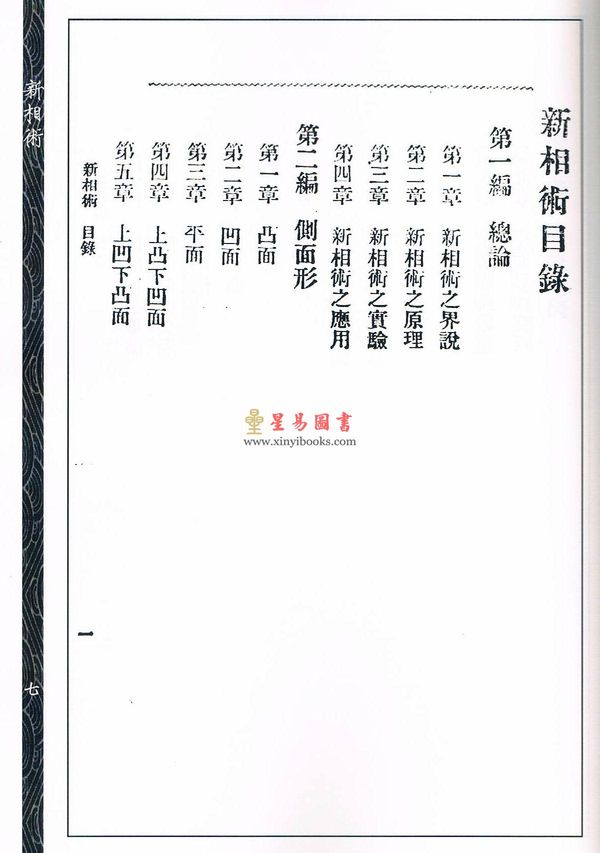 新相術目錄
第一編 總論
第一章 新相術之界說
第二章 新相術之原理
第三章 新相術之實驗
第四章 新相術之應用
第二編 側面形
第一章 凸面
第二章 凹面
第三章 平面
第四章 上凸下凹面
第五章 上凹下凸面
新相術 目錄
一
新相術
七
星易圖書
www.xinyibooks.com